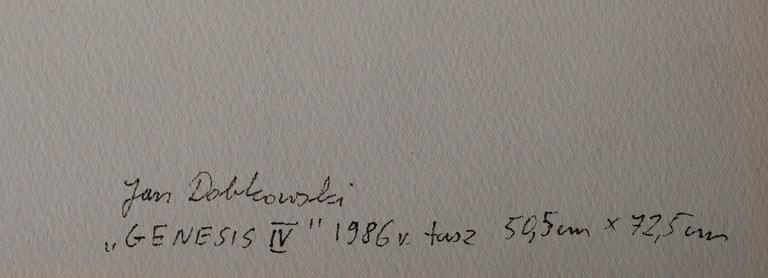 Jan Dobkowski
„GENESIS IV" 1986 r. tusz 50,5cm × 72,5cm